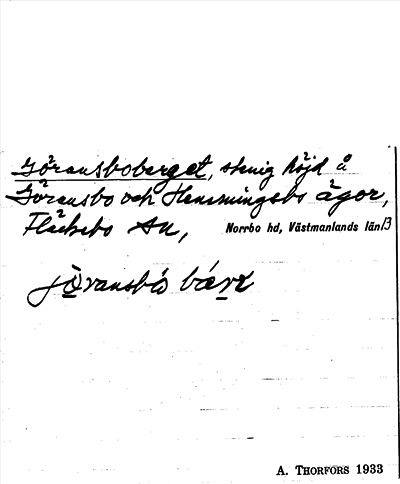 Göransboberget, stenig höjd å
Göransbo och Hemmingsbo ägor,
Fläckebo sn, Norrbo hd, Västmanlands län 13
jöransbo bærr
A. THORFORS 1933